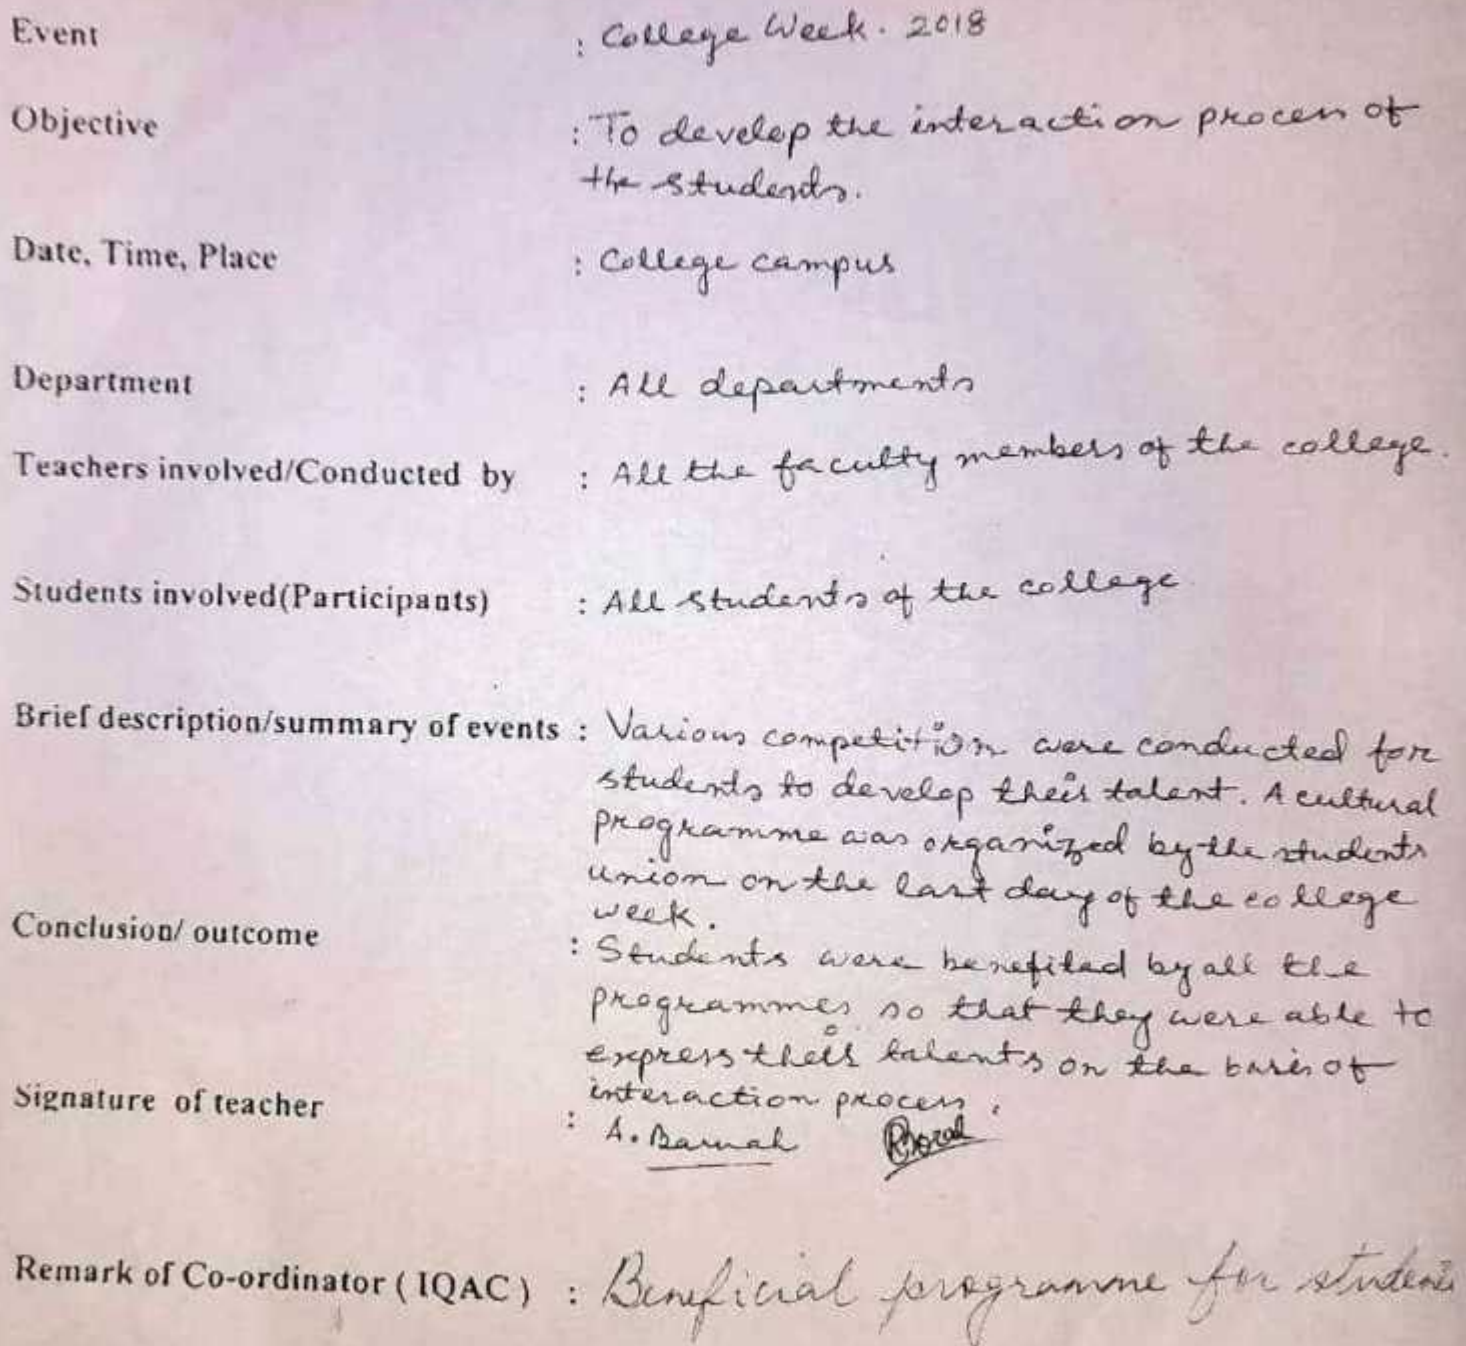 Event : College Week. 2018
Objective : To develop the interaction process of
the students.
Date, Time, Place : College campus
Department : All departments
Teachers involved/Conducted by : All the faculty members of the college.
Students involved(Participants) : All students of the college
Brief description/summary of events : Various competition were conducted for
students to develop their talent. A cultural
programme was organized by the students
union on the last day of the college
week.
Conclusion/ outcome : Students were benefited by all the
programmes so that they were able to
express their talents on the basis of
interaction process.
Signature of teacher : A. Baruah
Remark of Co-ordinator ( IQAC ) : Beneficial programme for students